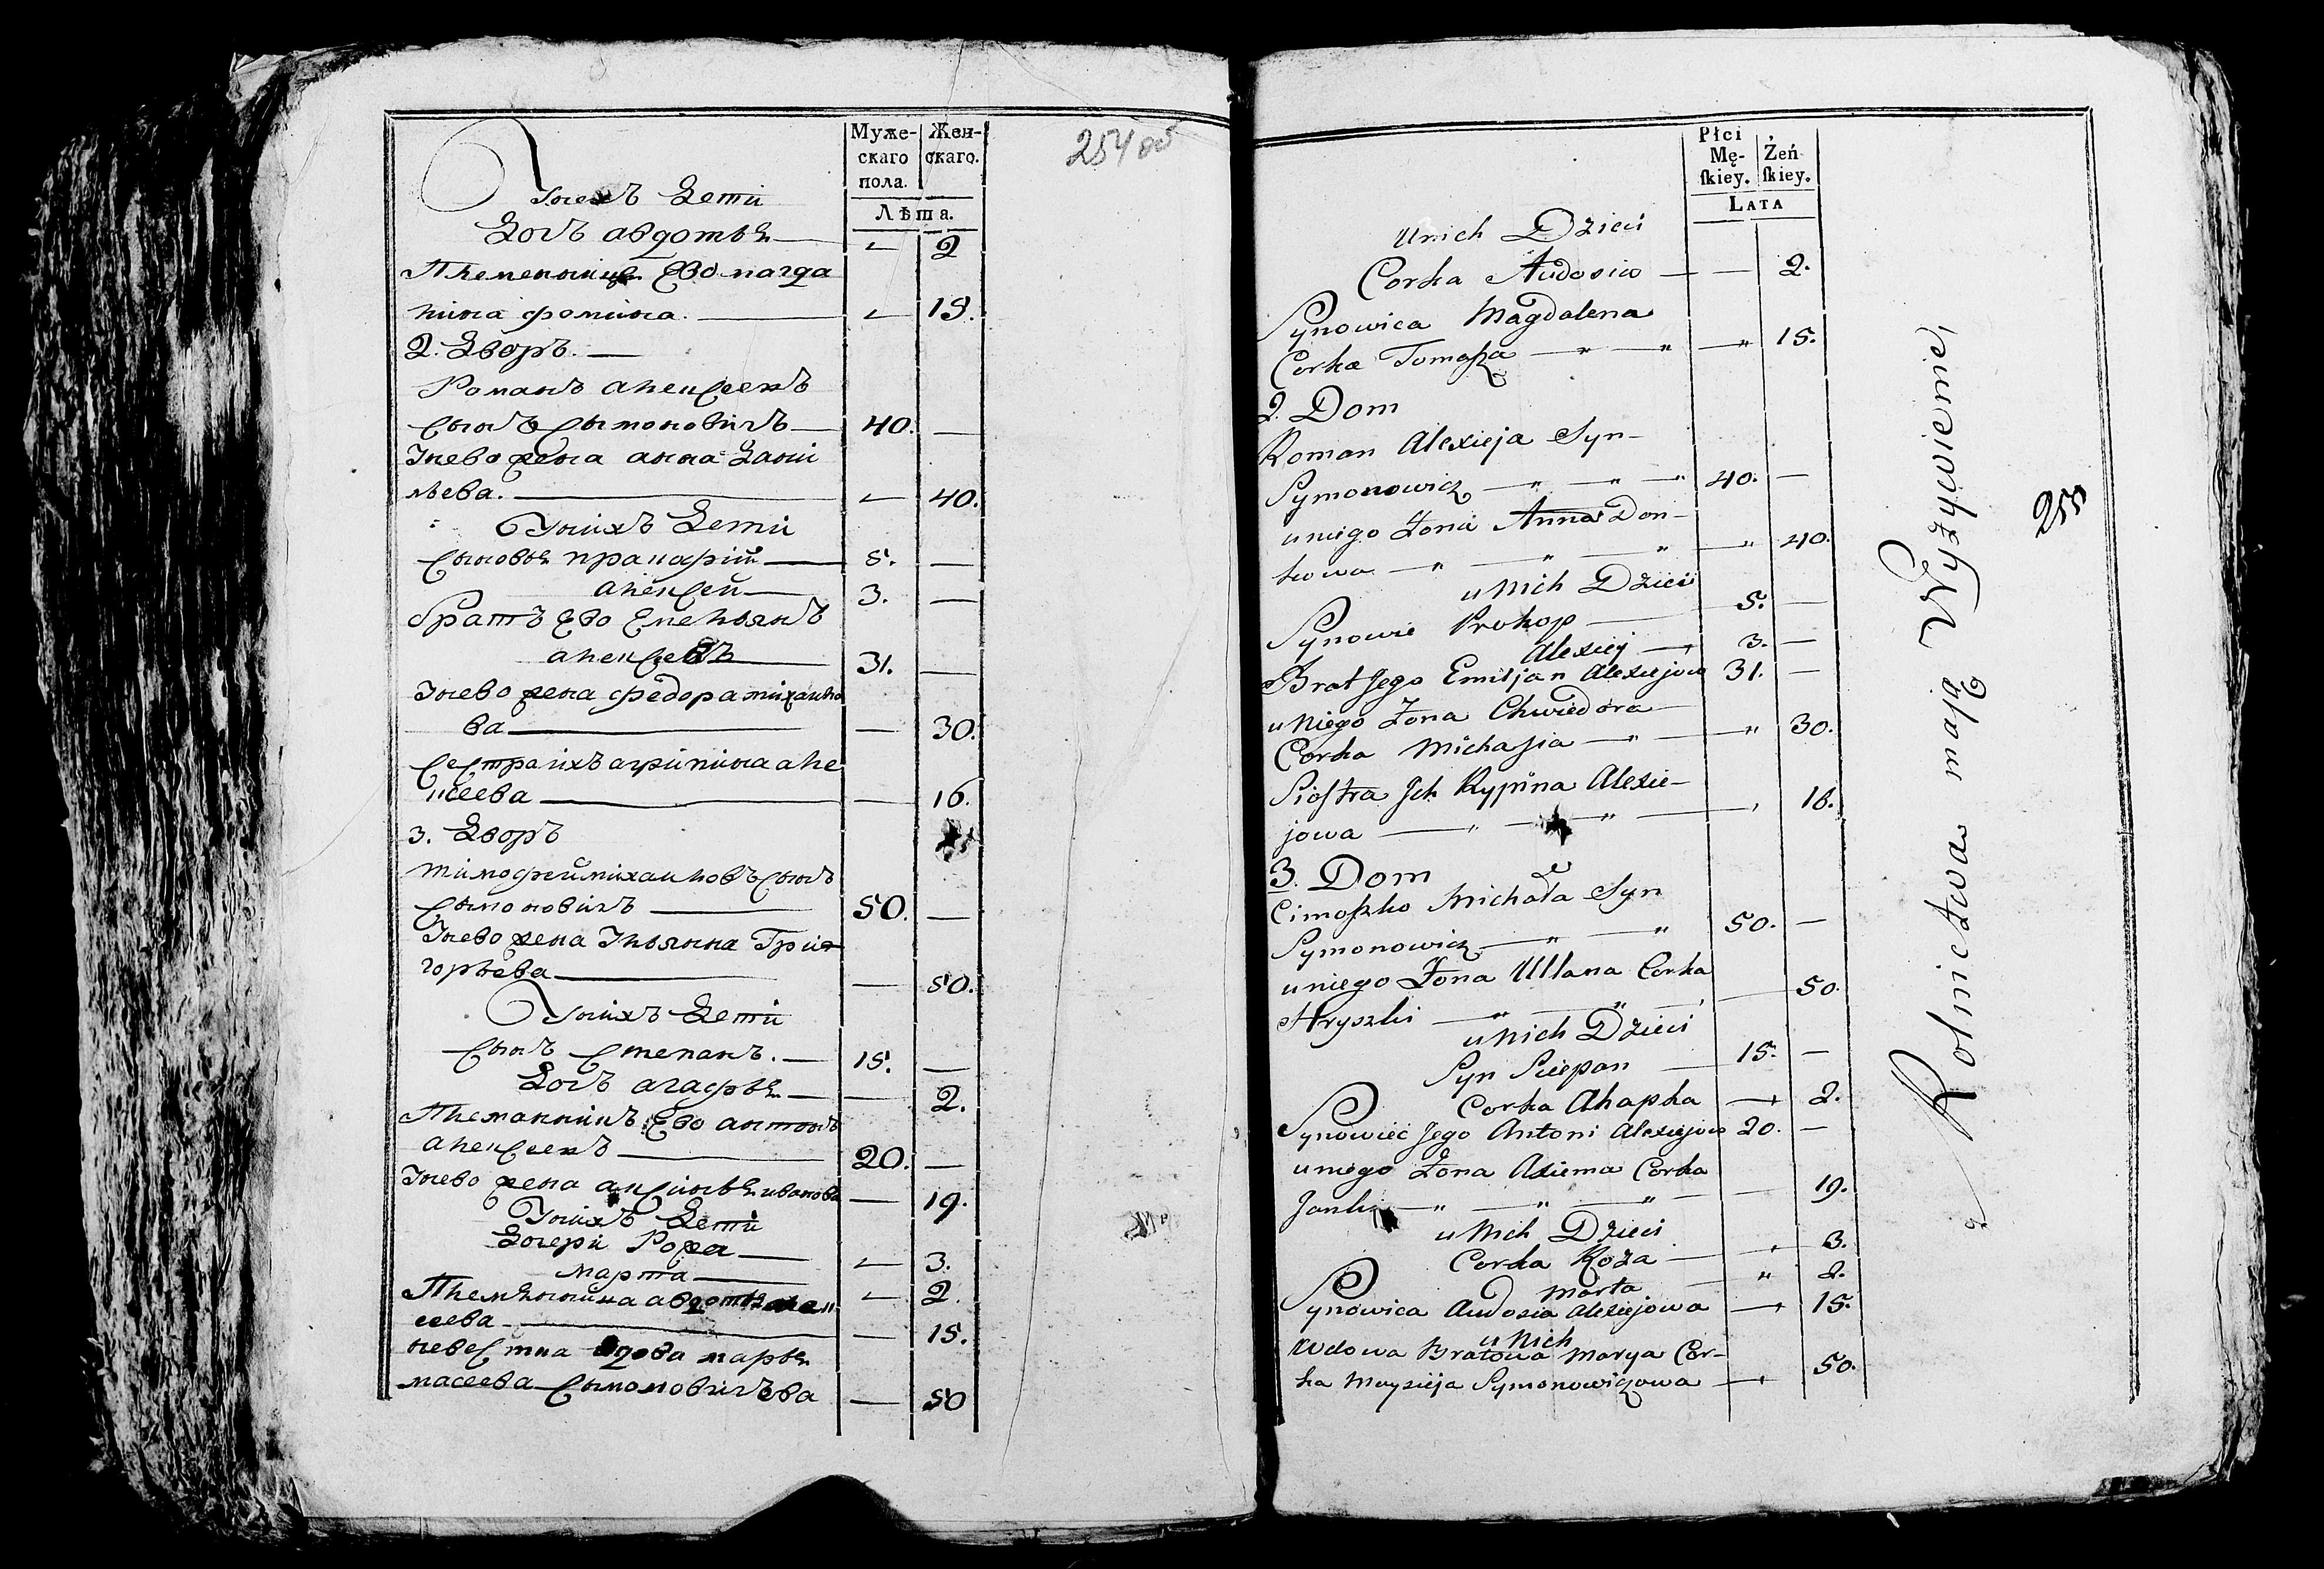 Муже-
скаго
пола.
Жен-
скаго.
Лѣта.
254 об
У них Дети
Дочь авдотья — 2
Племенница Ево магда
лина фомина. — 15.
2. Дворъ. —
Романъ алексеевъ
сынъ сымоновичъ — 40. —
У нево жена анна Дани
льева. — 40.
У нихъ Дети
сыновья прокофий — 5. —
алексей — 3. —
братъ Ево Емельянъ
алексеевъ — 31. —
У нево жена федора михайло
ва — 30.
сестра ихъ агрипина але
ксеева — 16.
3. Дворъ
тимофей михайловъ сынъ
сымоновичъ — 50. —
У нево жена Ульянна Гри
горьева — 50.
У нихъ Дети
сынъ степанъ. — 15. —
Дочь агафья — 2.
Племянникъ Ево антонъ
алексеевъ — 20. —
У нево жена аксинья иванова — 19.
У нихъ Дети
Дочери Рожа — 3.
марта — 2.
Племянница авдотья алек
сеева — 15.
невестка вдова марья
масеева сымоновичева — 50
Płci
Mę-
ſkiey.
Żeń
ſkiey.
LATA
u nich Dzieci
Corka Audosia — — 2.
Synowica Magdalena
Corka Tomaſza — " — " — " 15.
2. Dom
Roman Alexieja Syn-
Symonowicz — " — " — " 40. —
u niego Żona Anna Dan-
kowa — " — " — " 40.
u Nich Dzieci
Synowie Prokop — 5. —
Alexiey — 3. —
Brat Jego Emiljan Alexiejow 31. —
u Niego Żona Chwiedora —
Corka Michaſia — " — " 30.
Sioſtra Jch Rypina Alexie-
jowa — " — " — 16.
3. Dom
Cimoſzko Michała Syn
Symonowicz — " — " 50. —
u niego Żona Ullana Corka
Hryszki — " — " — 50.
u Nich Dzieci
Syn Sciepan — 15. —
Corka Ahapka — 2.
Synowiec Jego Antoni Alexiejow 20. —
u niego Żona Axiema Corka
Janki — " — " — " — 19.
u Nich Dzieci
Corka Roża — 3.
Marta — " 2.
Synowica Audosia Alexiejowa — 15.
u Nich
Wdowa Bratowa Marya Cor-
ka Moysieja Symonowiczowa — 50.
Rolnictwa mają Wyżywienie,
255